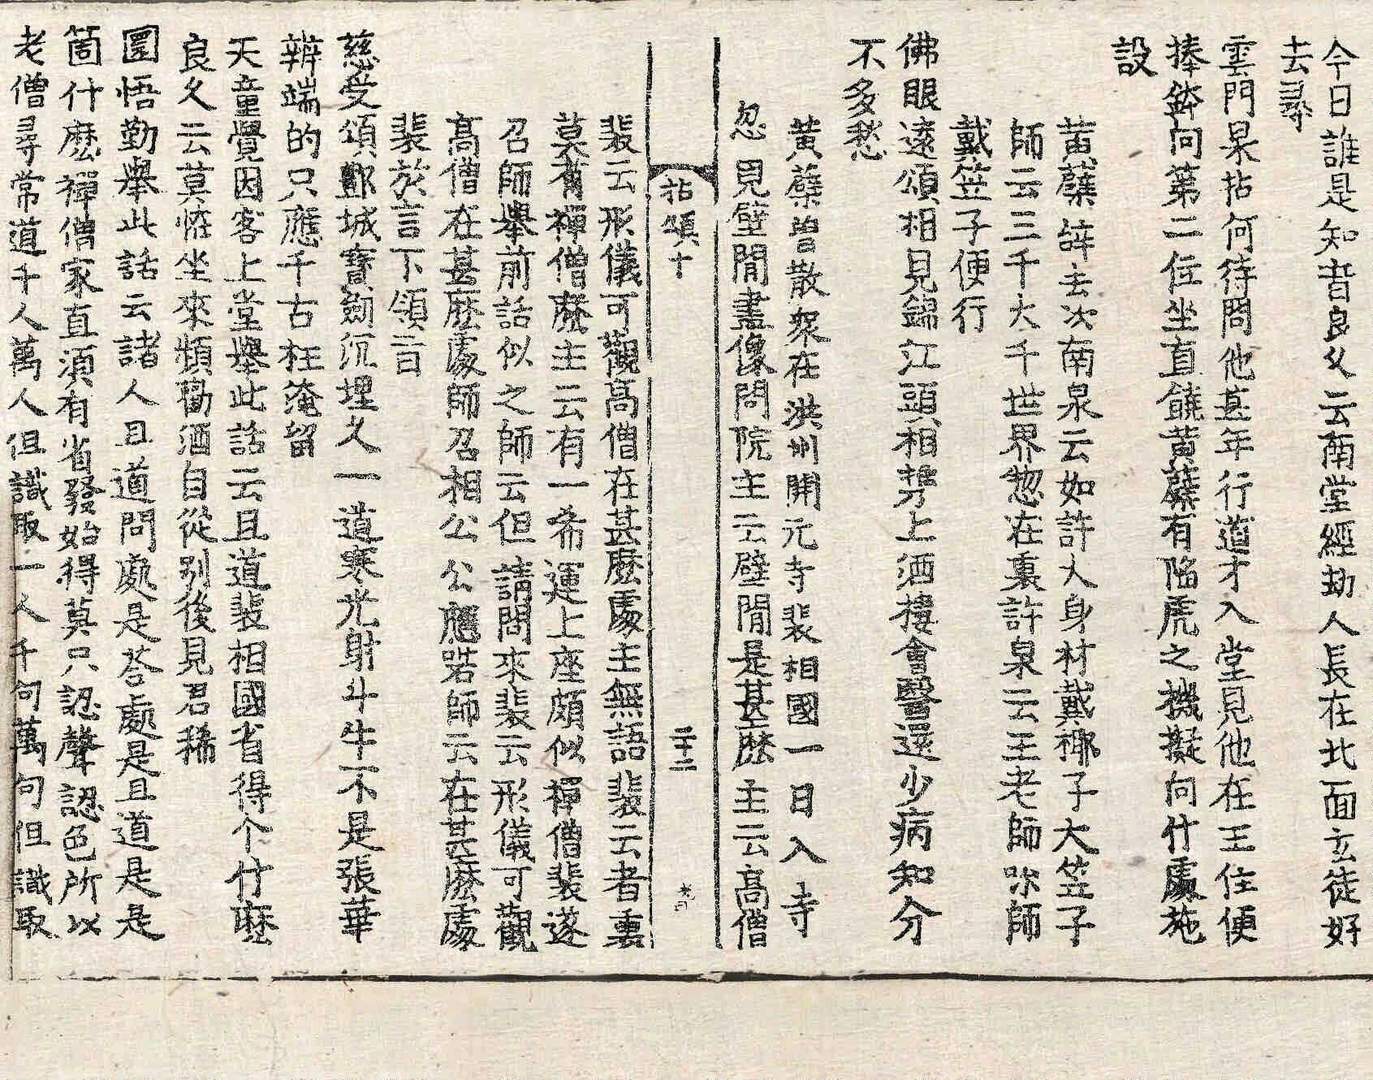 今日誰是知音良久云南堂經劫人長在北面玄徒好
去尋
雲門杲拈何待問他甚年行道才入堂見他在主位便
捧鉢向第二位坐直饒黃蘗有陷虎之機擬向什處施
設
黃蘗辝去次南泉云如許大身材戴椰子大笠子
師云三千大千世界惣在裏許泉云王老師你師
戴笠子便行
佛眼遠頌相見錦江頭相攜上酒樓會醫還少病知分
不多愁
黃蘗曾散衆在洪州開元寺裴相國一日入寺
忽見壁間畫像問院主云壁間是甚麽主云高僧
拈頌十
二十二
裴云形儀可觀高僧在甚麽處主無語裴云者裏
莫有禪僧麽主云有一希運上座頗似禪僧裴遂
召師舉前話似之師云但請問來裴云形儀可觀
高僧在甚麽處師召相公公應喏師云在甚麽處
裴於言下領旨
慈受頌酆城寶劒沉埋久一道寒光射斗牛不是張華
辨端的只應千古枉淹留
天童覺因客上堂舉此話云且道裴相國省得个什麽
良久云莫恠坐來頻勸酒自從別後見君稀
圜悟勤舉此話云諸人且道問處是荅處是且道是是
箇什麽禪僧家直須有省發始得莫只認聲認色所以
老僧尋常道千人萬人但識取一人千句萬句但識取